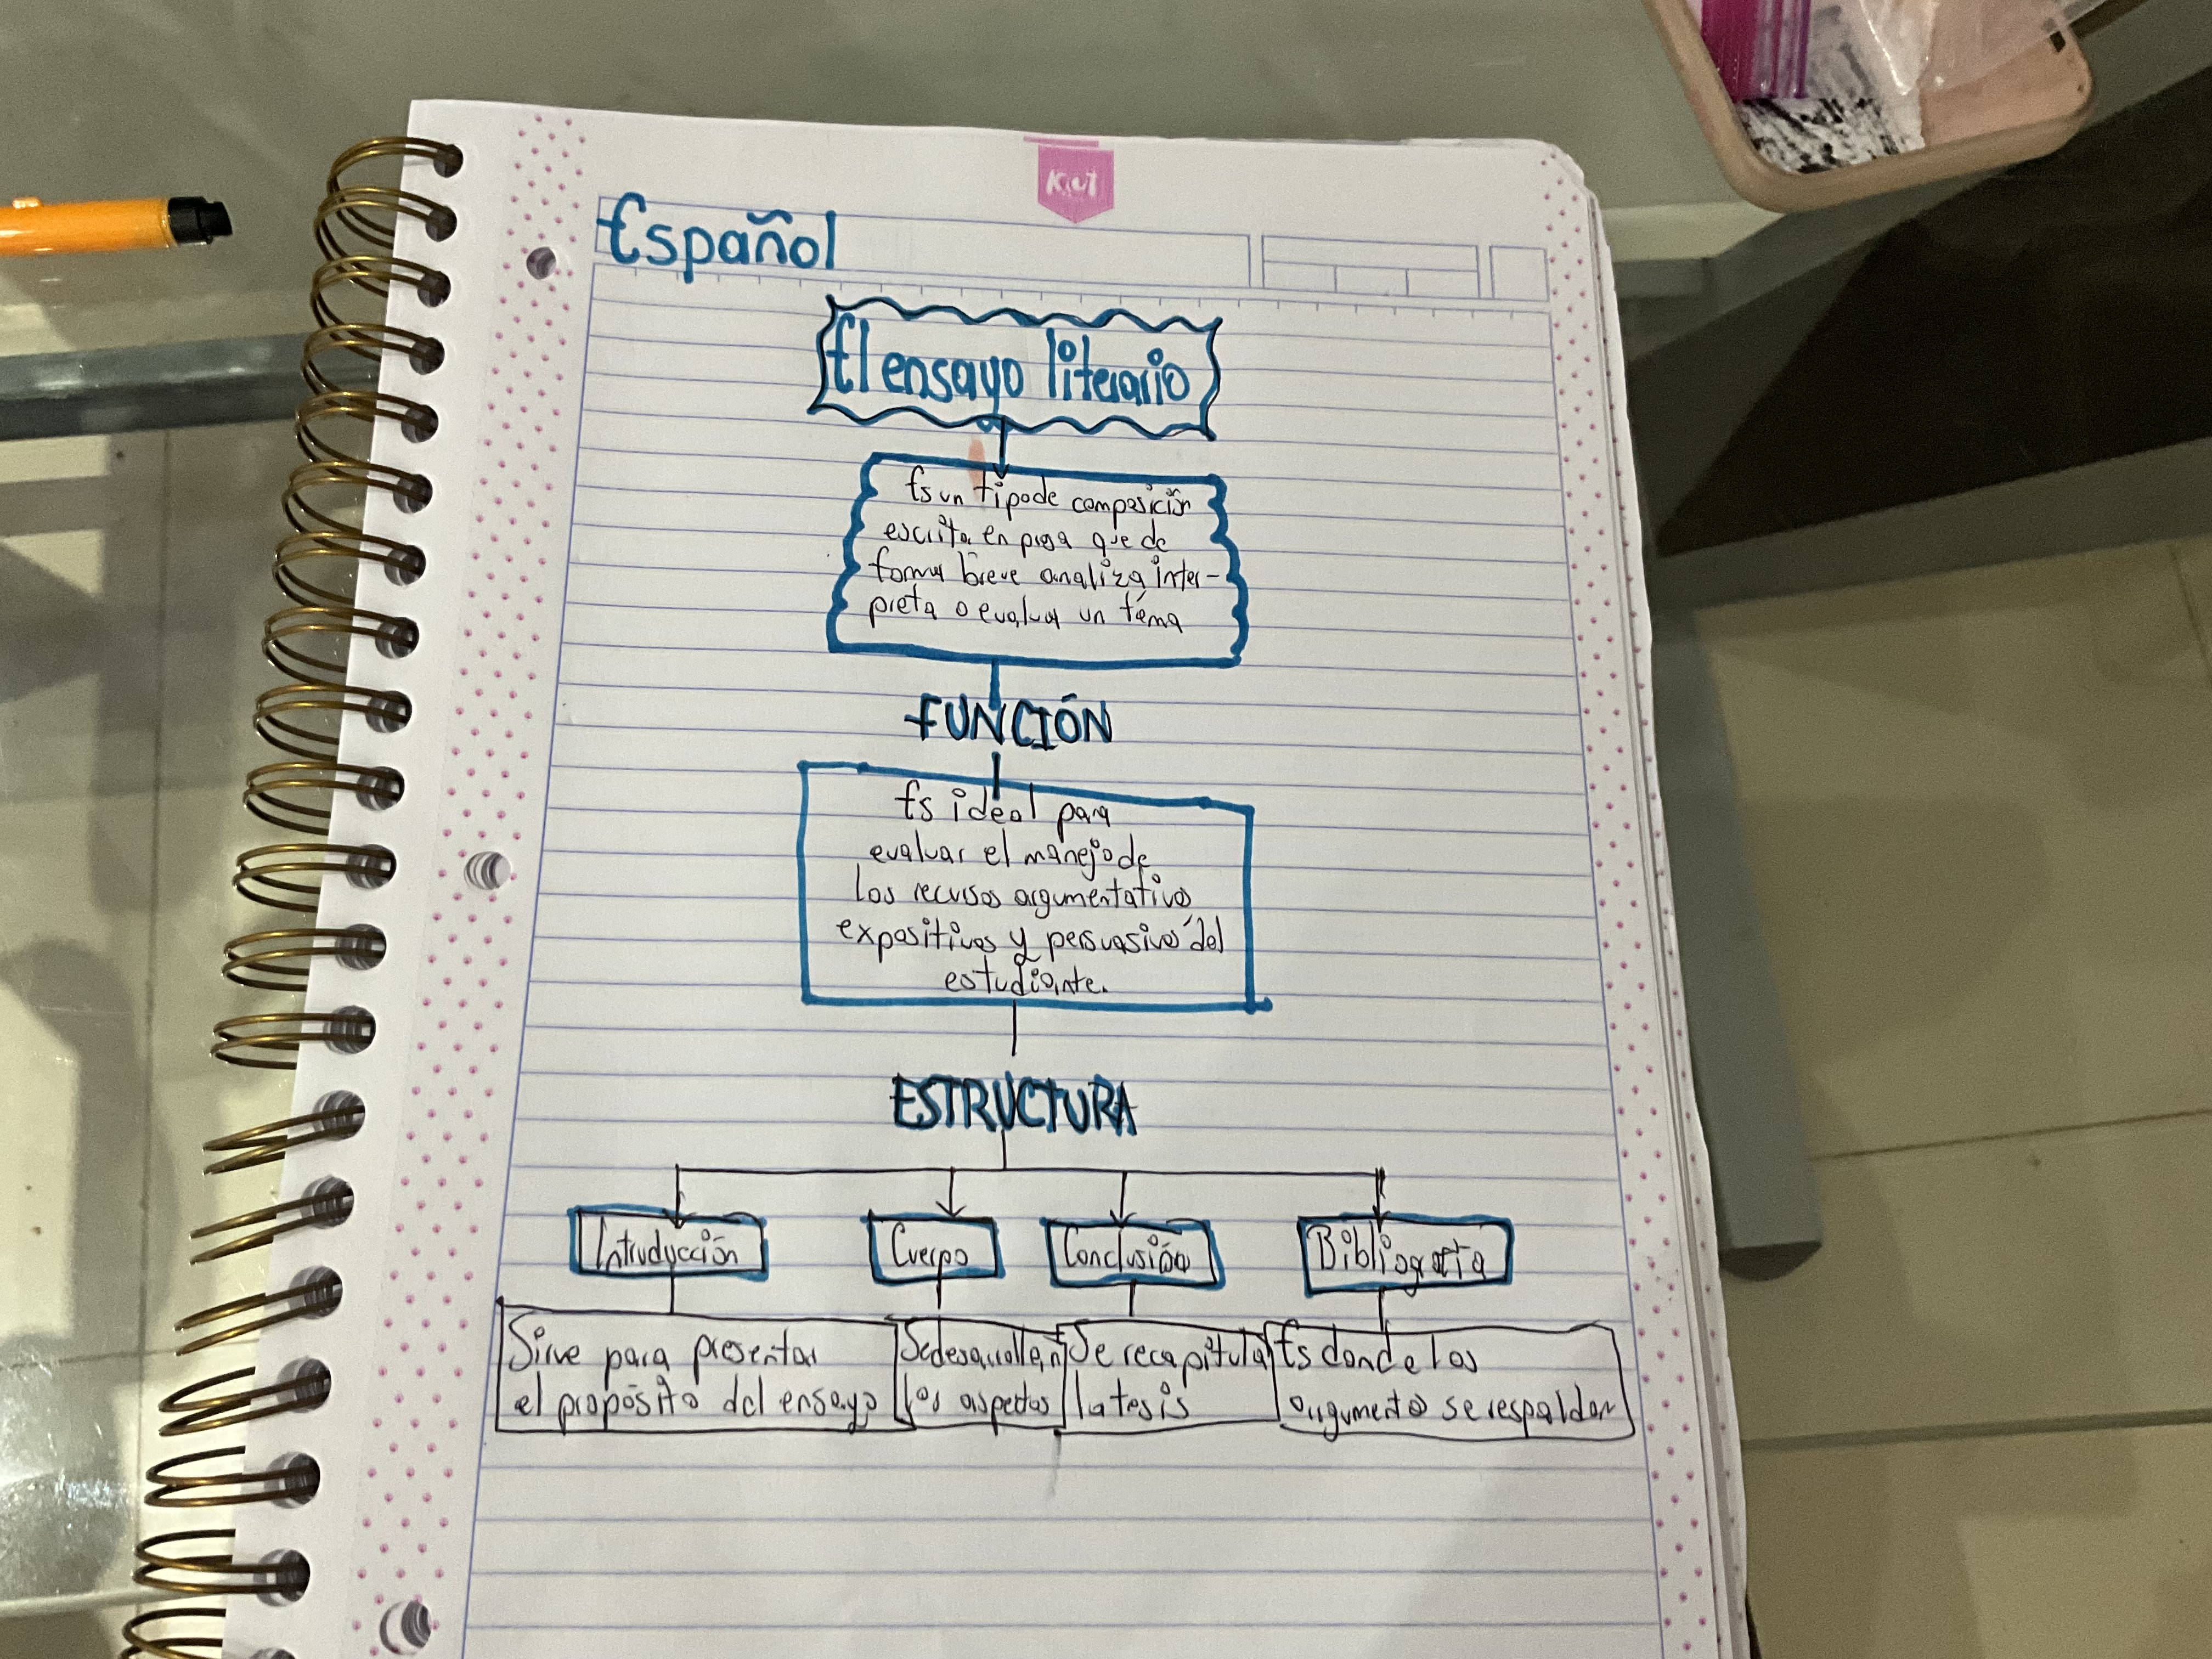 Kiut
Español
El ensayo literario
Es un tipo de composición
escrita en prosa que de
forma breve analiza inter-
preta o evaluar un tema
FUNCIÓN
Es ideal para
evaluar el manejo de
los recursos argumentativos
expositivos y persuasivos del
estudiante.
ESTRUCTURA
Introducción
Cuerpo
Conclusión
Bibliografía
Sirve para presentar
el propósito del ensayo
Se desarrollan
los aspectos
Se recapitula
la tesis
Es donde los
argumentos se respaldan